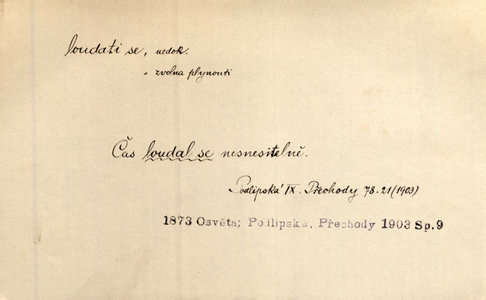 loudati se, nedok.
zvolna plynouti
Čas loudal se nesnesitelně.
Podlipská IX. Přechody 78.21 (1903)
1873 Osvěta; Podlipská, Přechody 1903 Sp.9